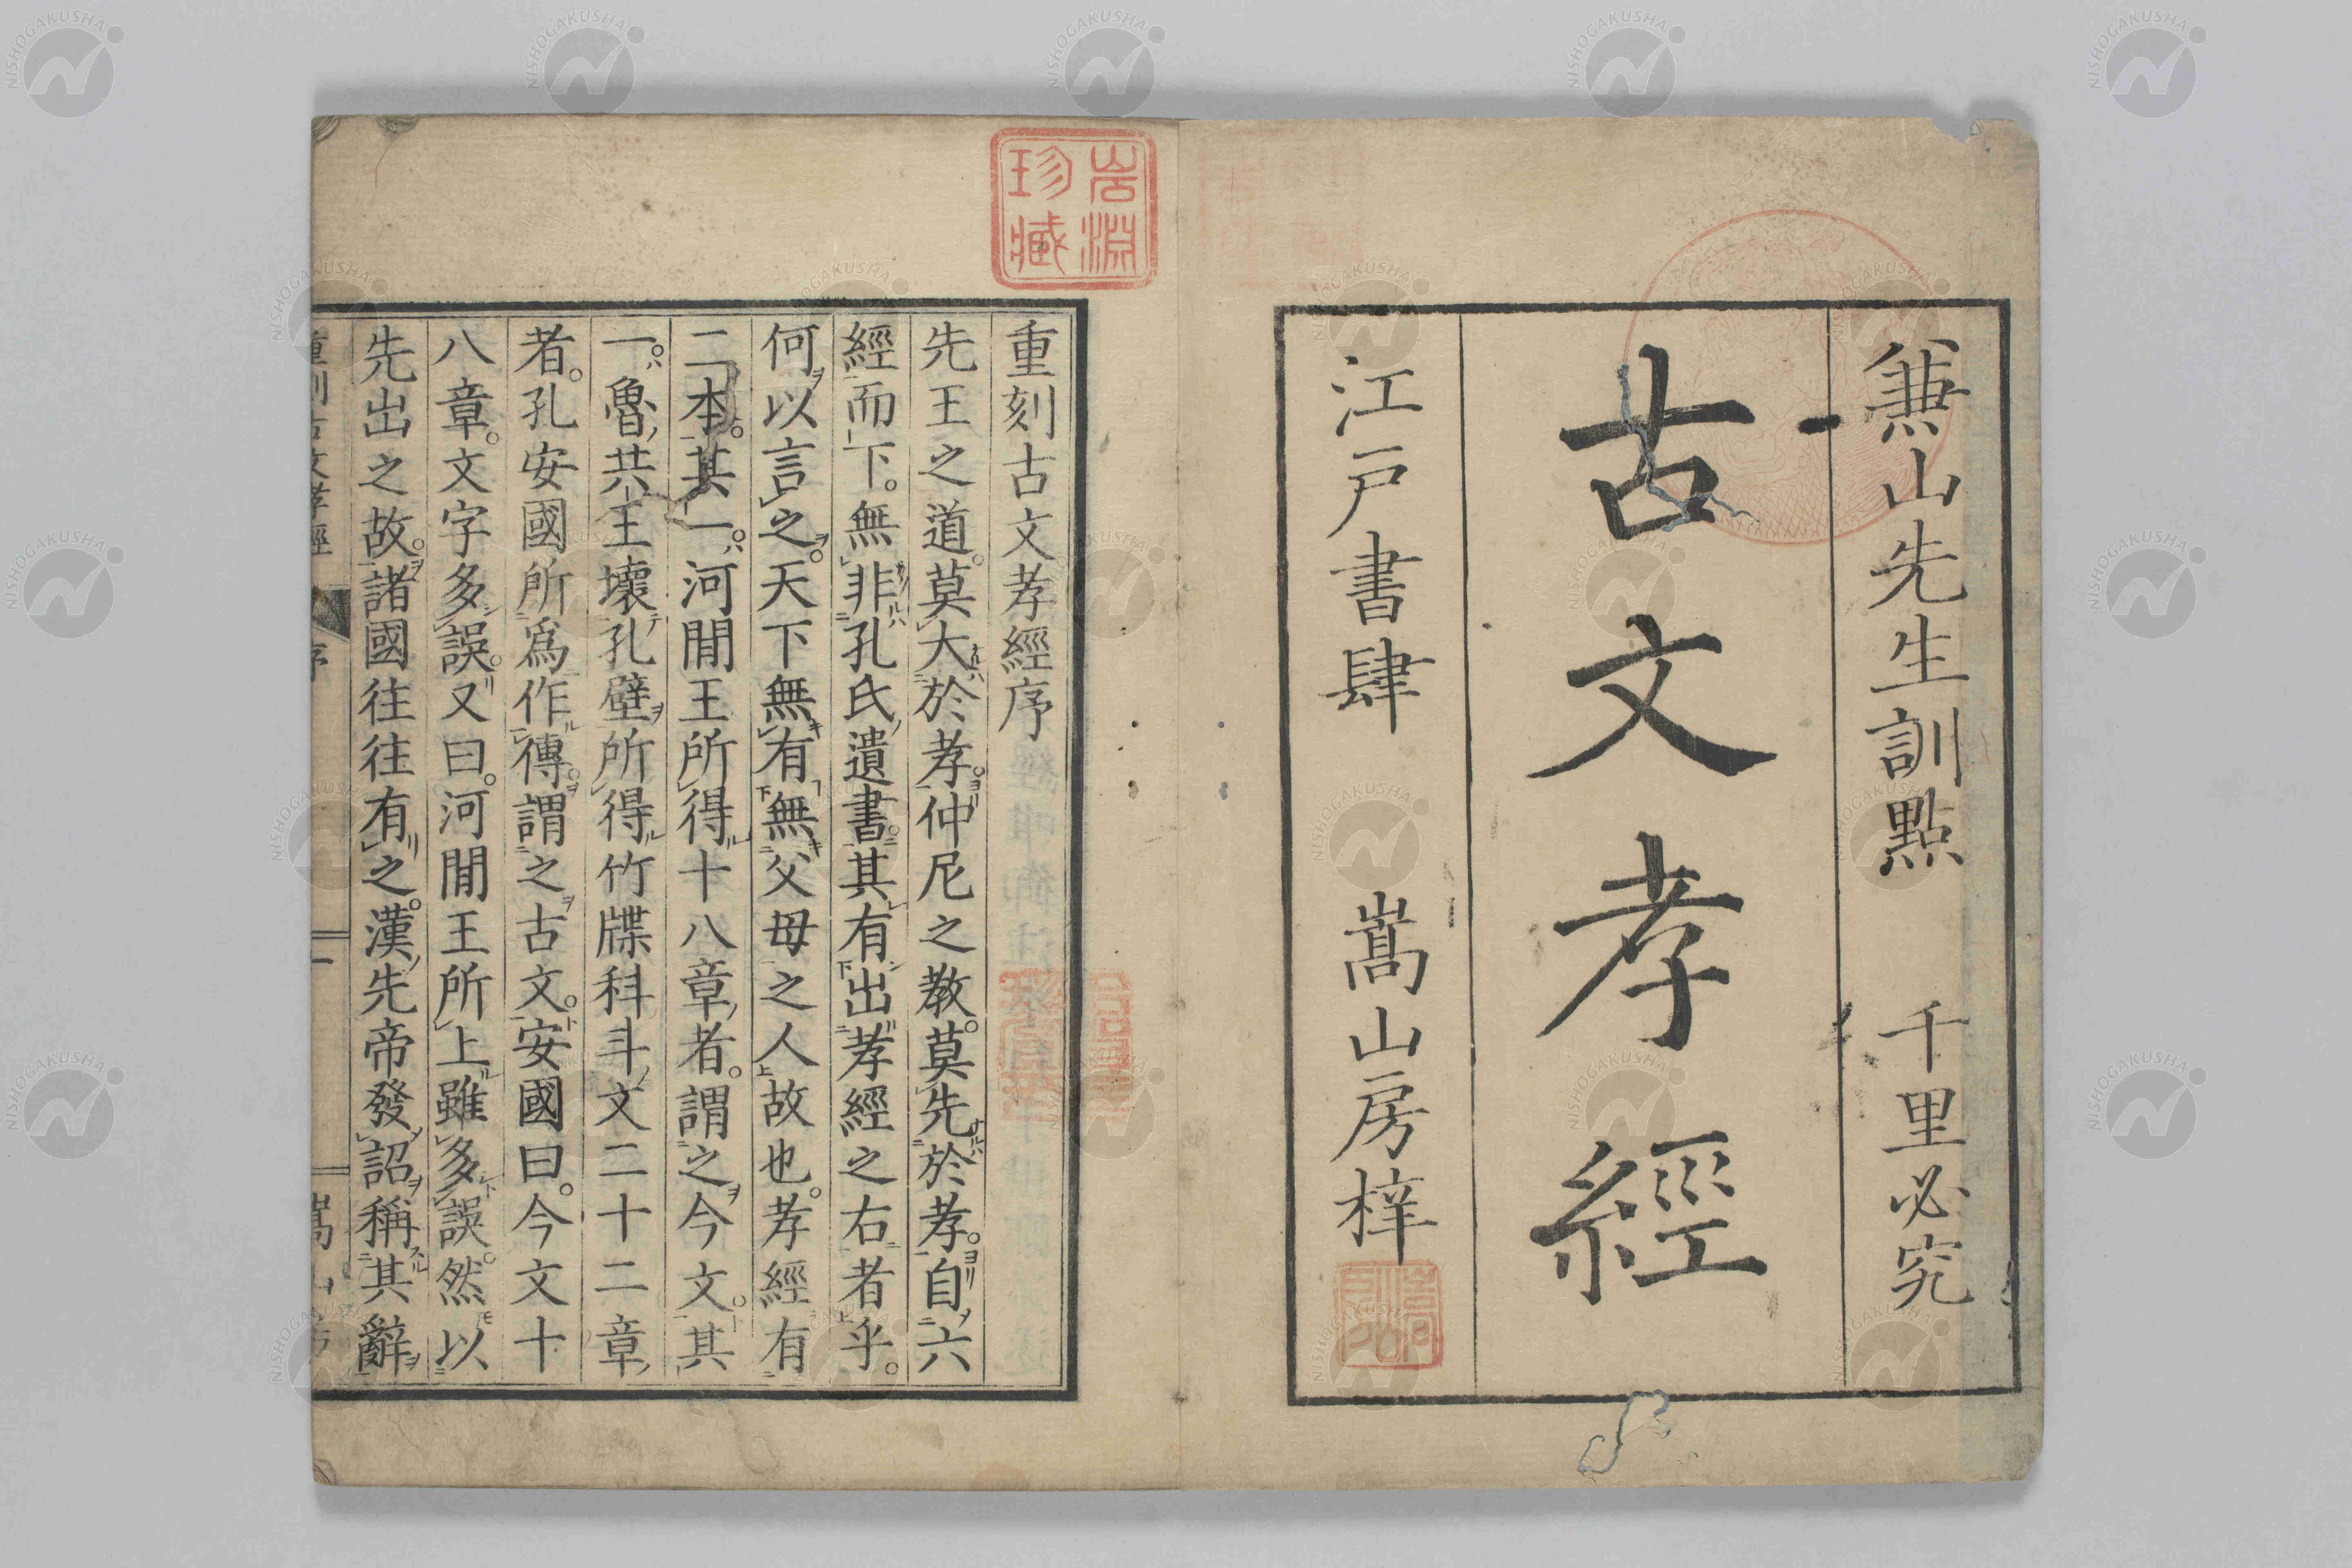 兼山先生訓點 千里必究
古文孝經
江戸書肆 嵩山房梓
岩淵珍藏
重刻古文孝經序
先王之道。莫大於孝。仲尼之教。莫先於孝。自六
經而下。無非孔氏遺書。其有出孝經之右者乎。
何以言之。天下無有無父母之人故也。孝經有
二本。其一。河閒王所得十八章者。謂之今文。其
一。魯共王壞孔壁所得竹牒科斗文二十二章
者。孔安國所爲作傳。謂之古文。安國曰。今文十
八章。文字多誤。又曰。河閒王所上雖多誤。然以
先出之故。諸國往往有之。漢先帝發詔稱其辭
重刻古文孝經 序 一 嵩山房
NISHOGAKUSHA